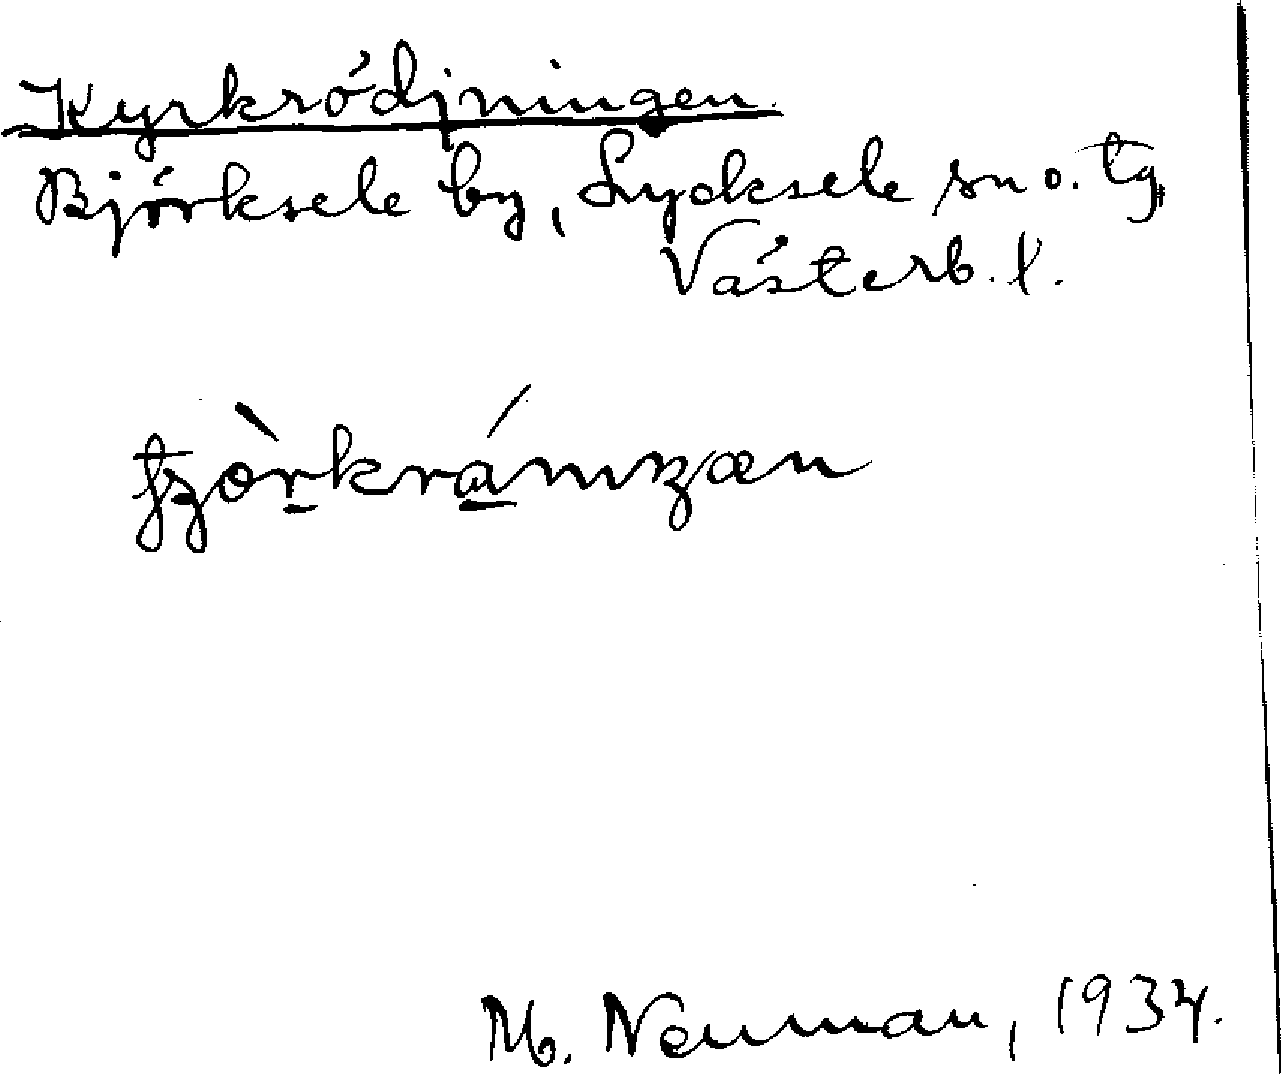 Kyrkrödjningen.
Björksele by, Lycksele sn o. tg
Västerb. l.
M. Neuman, 1934.